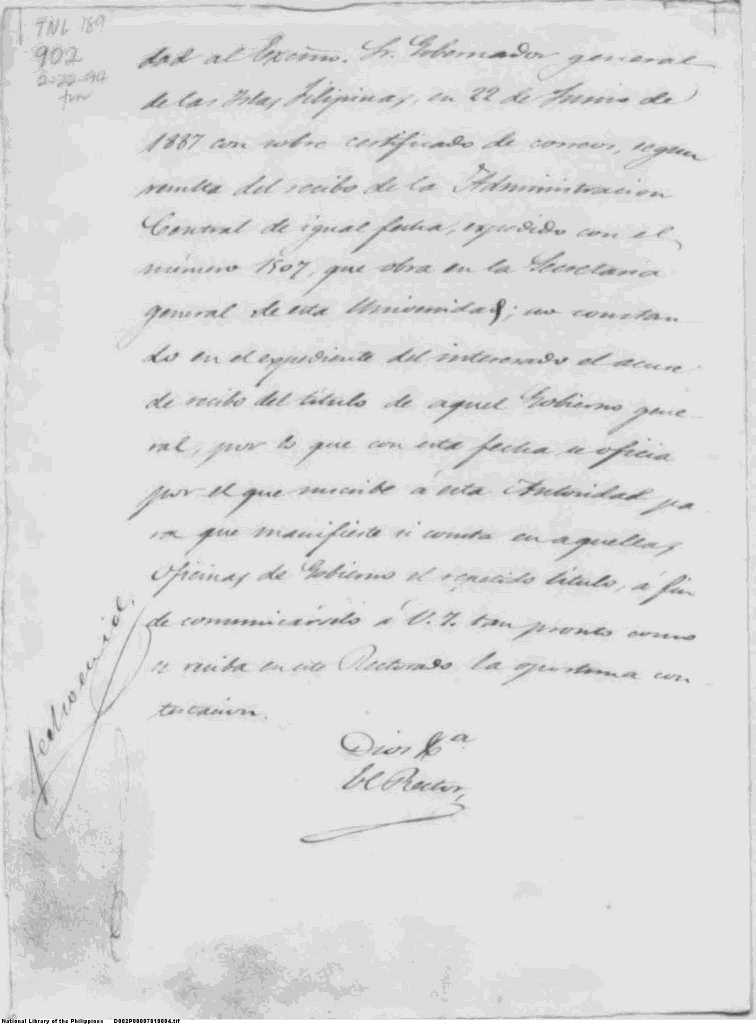 TNL 189
902
2-22-97
dad al Excmo. Sr. Gobernador general
de las Islas Filipinas, en 22 de Junio de
1887 con sobre certificado de correos, segun
resulta del recibo de la Administracion
Central de igual fecha, expedido con el
número 1507, que obra en la Secretaria
general de esta Universidad; no constan
do en el expediente del interesado el acuse
de recibo del titulo de aquel Gobierno gene-
ral, por lo que con esta fecha se oficia
por el que suscribe á esta Autoridad pa
ra que manifieste si consta en aquellas
oficinas de Gobierno el repetido titulo, á fin
de comunicárselo á V. I. tan pronto como
se reciba en este Rectorado la oportuna con
testacion.
Dios &a
El Rector,
National Library of the Philippines D002P00097019004.tif